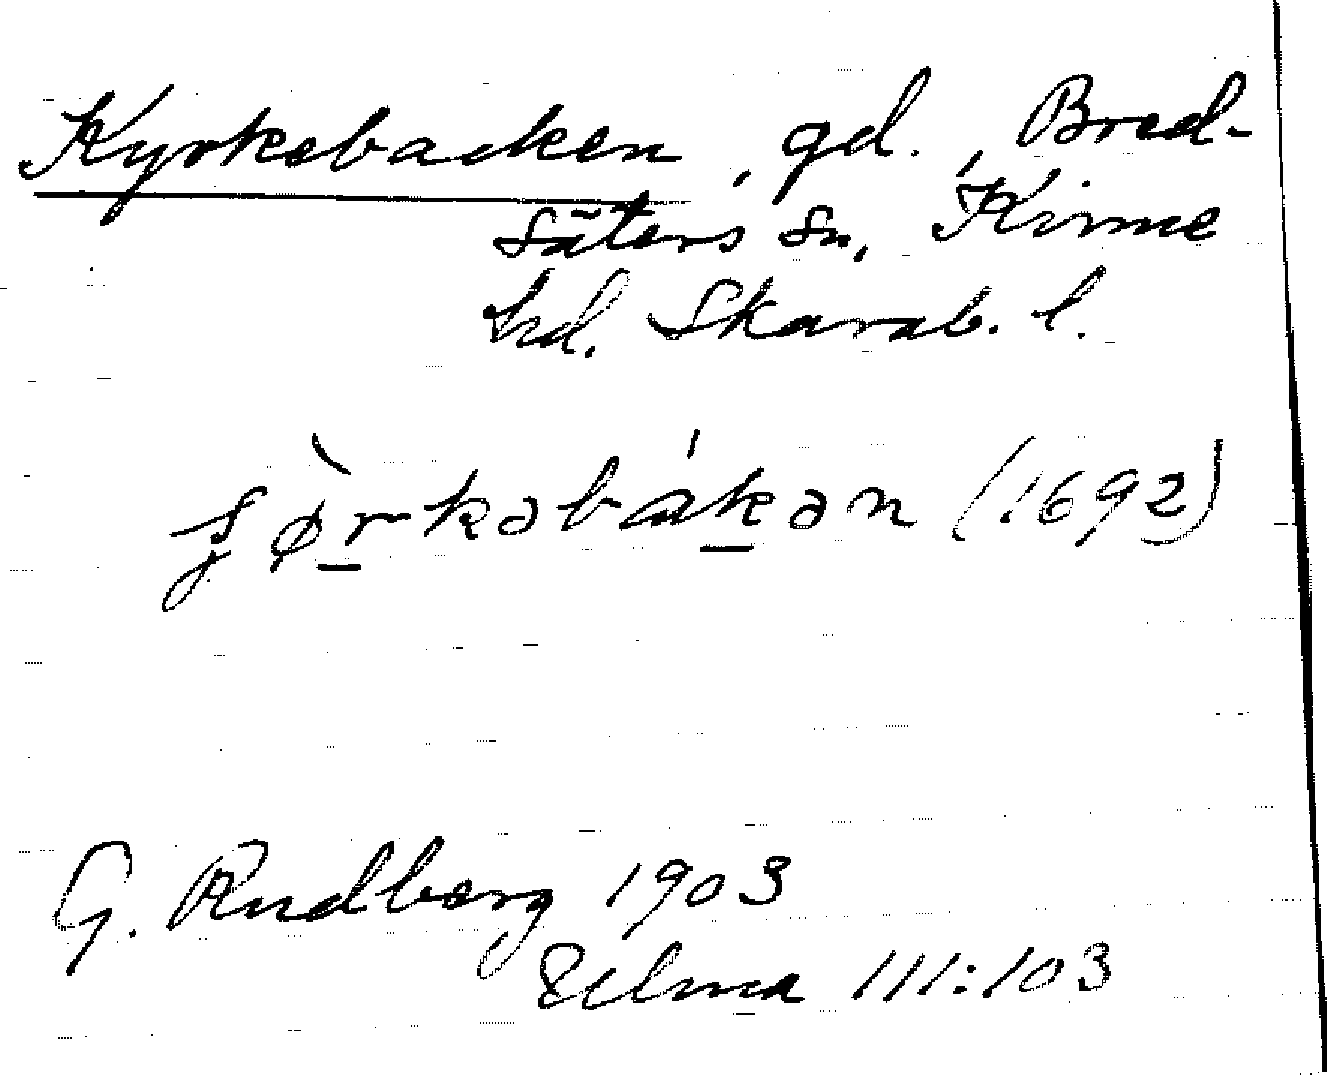 Kyrkebacken, gd., Bred-
säters sn, Kinne
hd. Skarab. l.
(1692)
G. Rudberg 1903
Elma 111:103